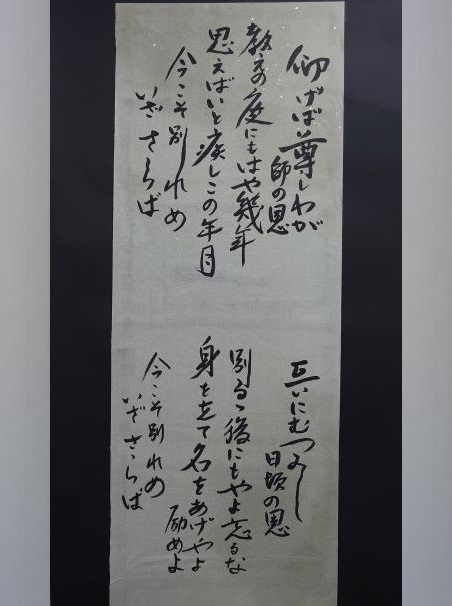 仰げば尊しわが
師の恩
教えの庭にもはや幾年
思えばいと疾しこの年月
今こそ別れめ
いざさらば
互いにむつみし
日頃の恩
別るゝ後にもやよ忘るな
身を立て名をあげやよ
励めよ
今こそ別れめ
いざさらば